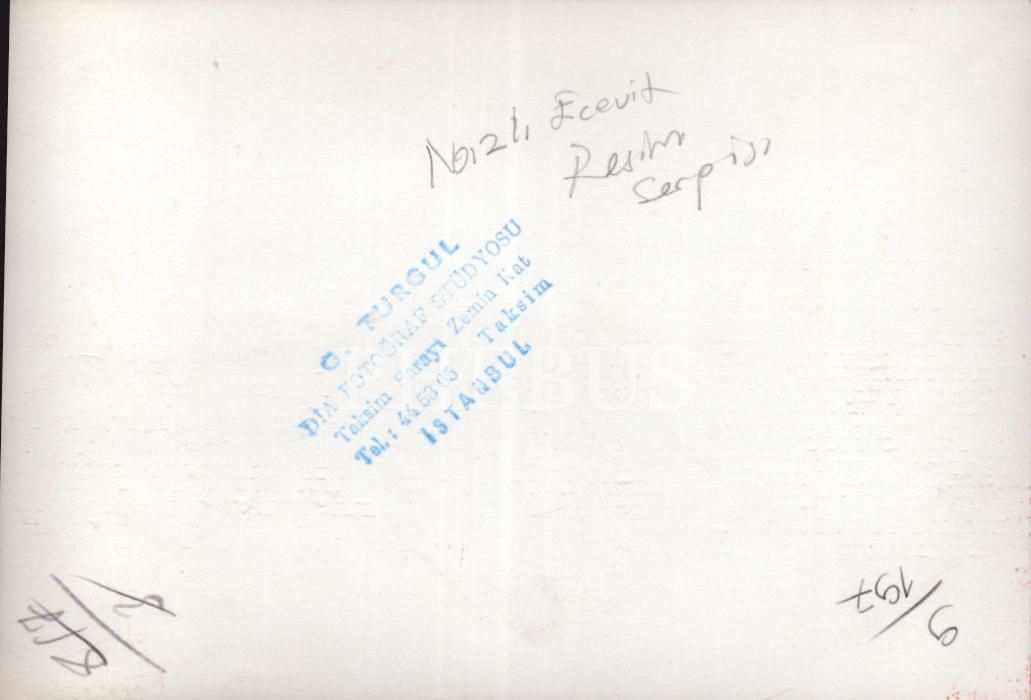 Nazlı Ecevit
Resim
Sergisi
G. TURGUL
DİA FOTOĞRAF STÜDYOSU
Taksim Sarayı Zemin Kat
Tel.: 44 53 65 Taksim
İSTANBUL
PHEBUS
9/197